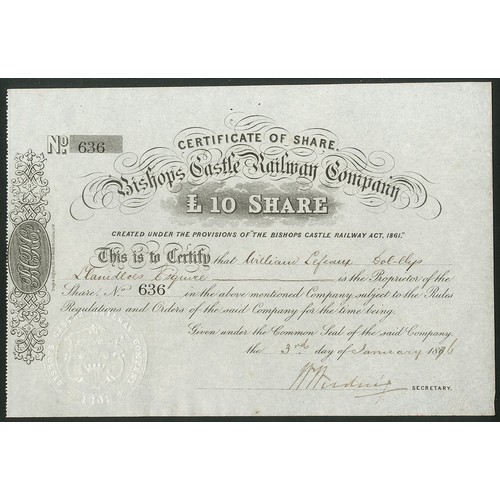 No. 636
CERTIFICATE OF SHARE.
Bishops Castle Railway Company
£ 10 SHARE
CREATED UNDER THE PROVISIONS OF "THE BISHOPS CASTLE RAILWAY ACT, 1861."
This is to Certify that William Lefeaux
Llanidloes Esquire is the Proprietor of the
Share, No. 636 in the above mentioned Company subject to the Rules
Regulations and Orders of the said Company for the time being.
Given under the Common Seal of the said Company,
the 3rd day of January 18
SECRETARY.
1861